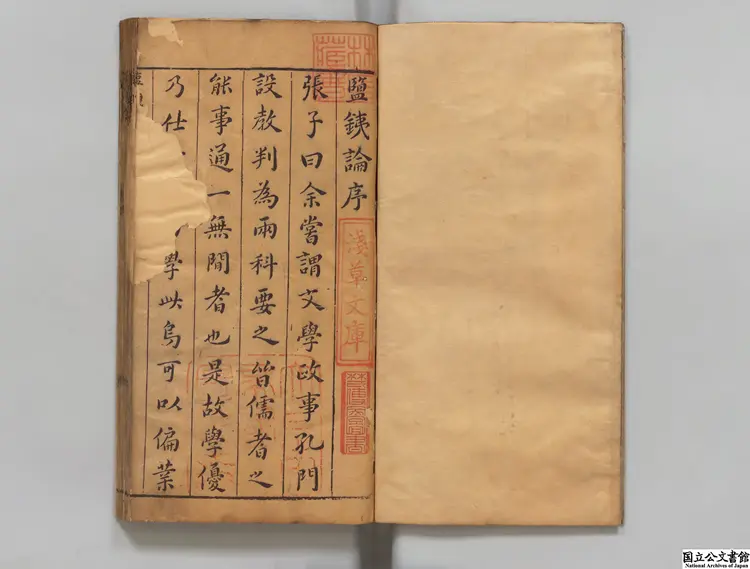 鹽鐵論序
張子曰余嘗謂文學政事孔門
設教判為兩科要之皆儒者之
能事通一無間者也是故學優
乃仕 學此烏可以偏葉
淺草文庫
国立公文書館
National Archives of Japan